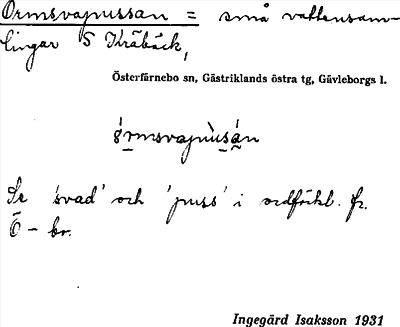 Ormsvapussan = små vattensam-
lingar S Kräbäck,
Österfärnebo sn, Gästriklands östra tg, Gävleborgs l.
órmsvapùsán
Se 'svad' och 'puss' i ordförkl. fr.
Ö-br.
Ingegärd Isaksson 1931